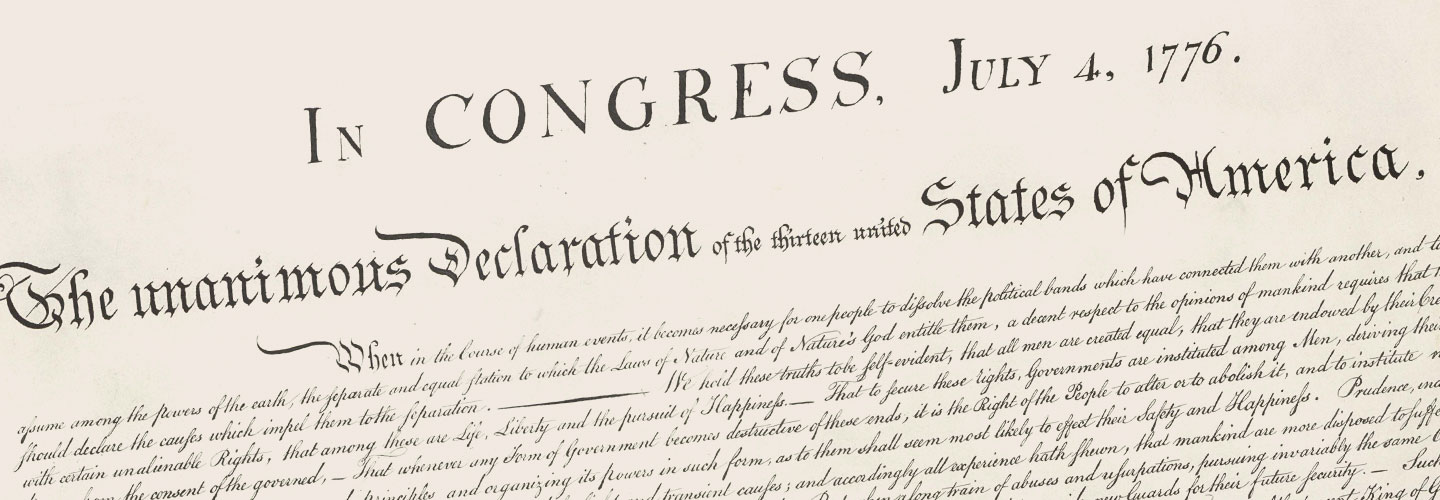 IN CONGRESS, JULY 4, 1776.
The unanimous Declaration of the thirteen united States of America,
When in the Course of human events, it becomes necessary for one people to dissolve the political bands which have connected them with another, and to
assume among the powers of the earth, the separate and equal station to which the Laws of Nature and of Nature's God entitle them, a decent respect to the opinions of mankind requires that
should declare the causes which impel them to the separation. ——— We hold these truths to be self-evident, that all men are created equal, that they are endowed by their Cre
with certain unalienable Rights, that among these are Life, Liberty and the pursuit of Happiness.— That to secure these rights, Governments are instituted among Men, deriving
from the consent of the governed, — That whenever any Form of Government becomes destructive of these ends, it is the Right of the People to alter or to abolish it, and to institute
principles and organizing its powers in such form, as to them shall seem most likely to effect their Safety and Happiness. Prudence,
transient causes; and accordingly all experience hath shewn, that mankind are more disposed to
a long train of abuses and usurpations, pursuing invariably the same
new Guards for their future security. — Such
King of